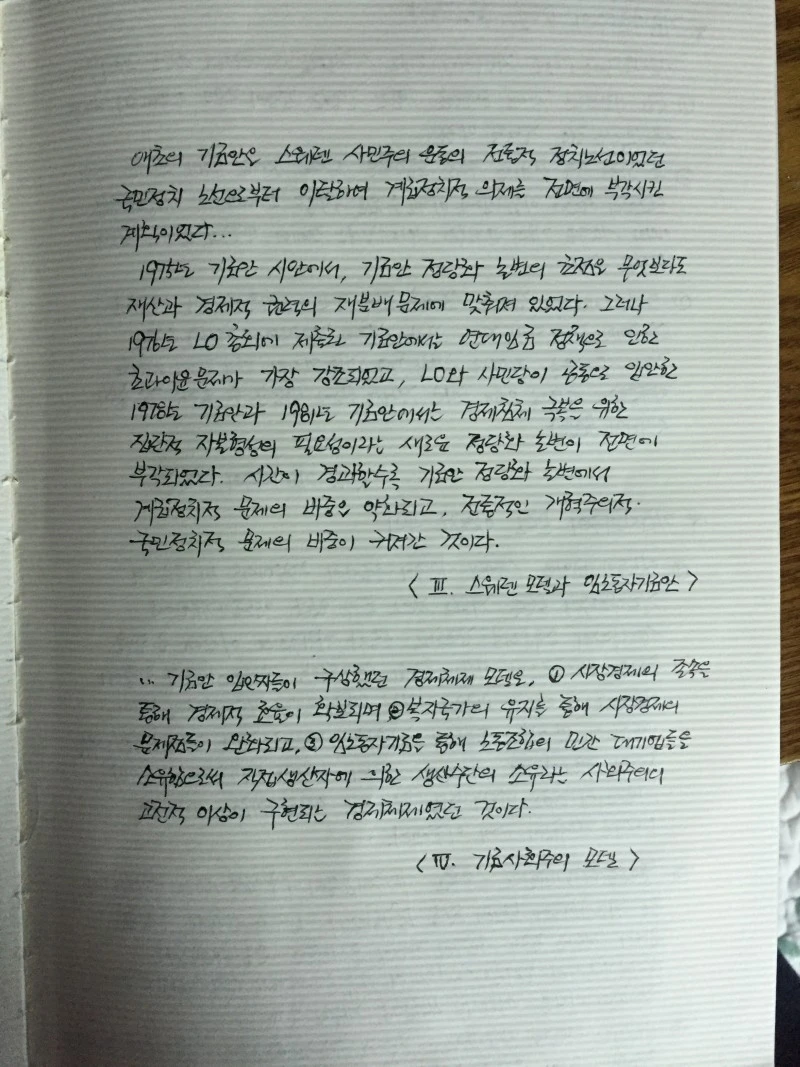 애초의 기금안은 스웨덴 사민주의 운동의 전통적 정치노선이었던
국민정치 노선으로부터 이탈하여 계급정치적 의제를 전면에 부각시킨
계획이었다...
1975년도 기금안 시안에서, 기금안 정당화 논변의 초점은 무엇보다도
재산과 경제적 권력의 재분배 문제에 맞춰져 있었다. 그러나
1976년도 LO 총회에 제출된 기금안에서는 연대임금 정책으로 인한
초과이윤 문제가 가장 강조되었고, LO와 사민당이 공동으로 입안한
1978년도 기금안과 1981년도 기금안에서는 경제침체 극복을 위한
집단적 자본형성의 필요성이라는 새로운 정당화 논변이 전면에
부각되었다. 시간이 경과할수록 기금안 정당화 논변에서
계급정치적 문제의 비중은 약화되고, 전통적인 개혁주의적·
국민정치적 문제의 비중이 커져간 것이다.
< Ⅲ. 스웨덴 모델과 임노동자기금안 >
... 기금안 입안자들이 구상했던 경제체제 모델은, ① 시장경제의 존속을
통해 경제적 효율이 확보되며 ② 복지국가의 유지를 통해 시장경제의
문제점들이 완화되고, ③ 임노동자기금을 통해 노동조합이 민간 대기업들을
소유함으로써 직접생산자에 의한 생산수단의 소유라는 사회주의의
고전적 이상이 구현되는 경제체제였던 것이다.
< Ⅳ. 기금사회주의 모델 >